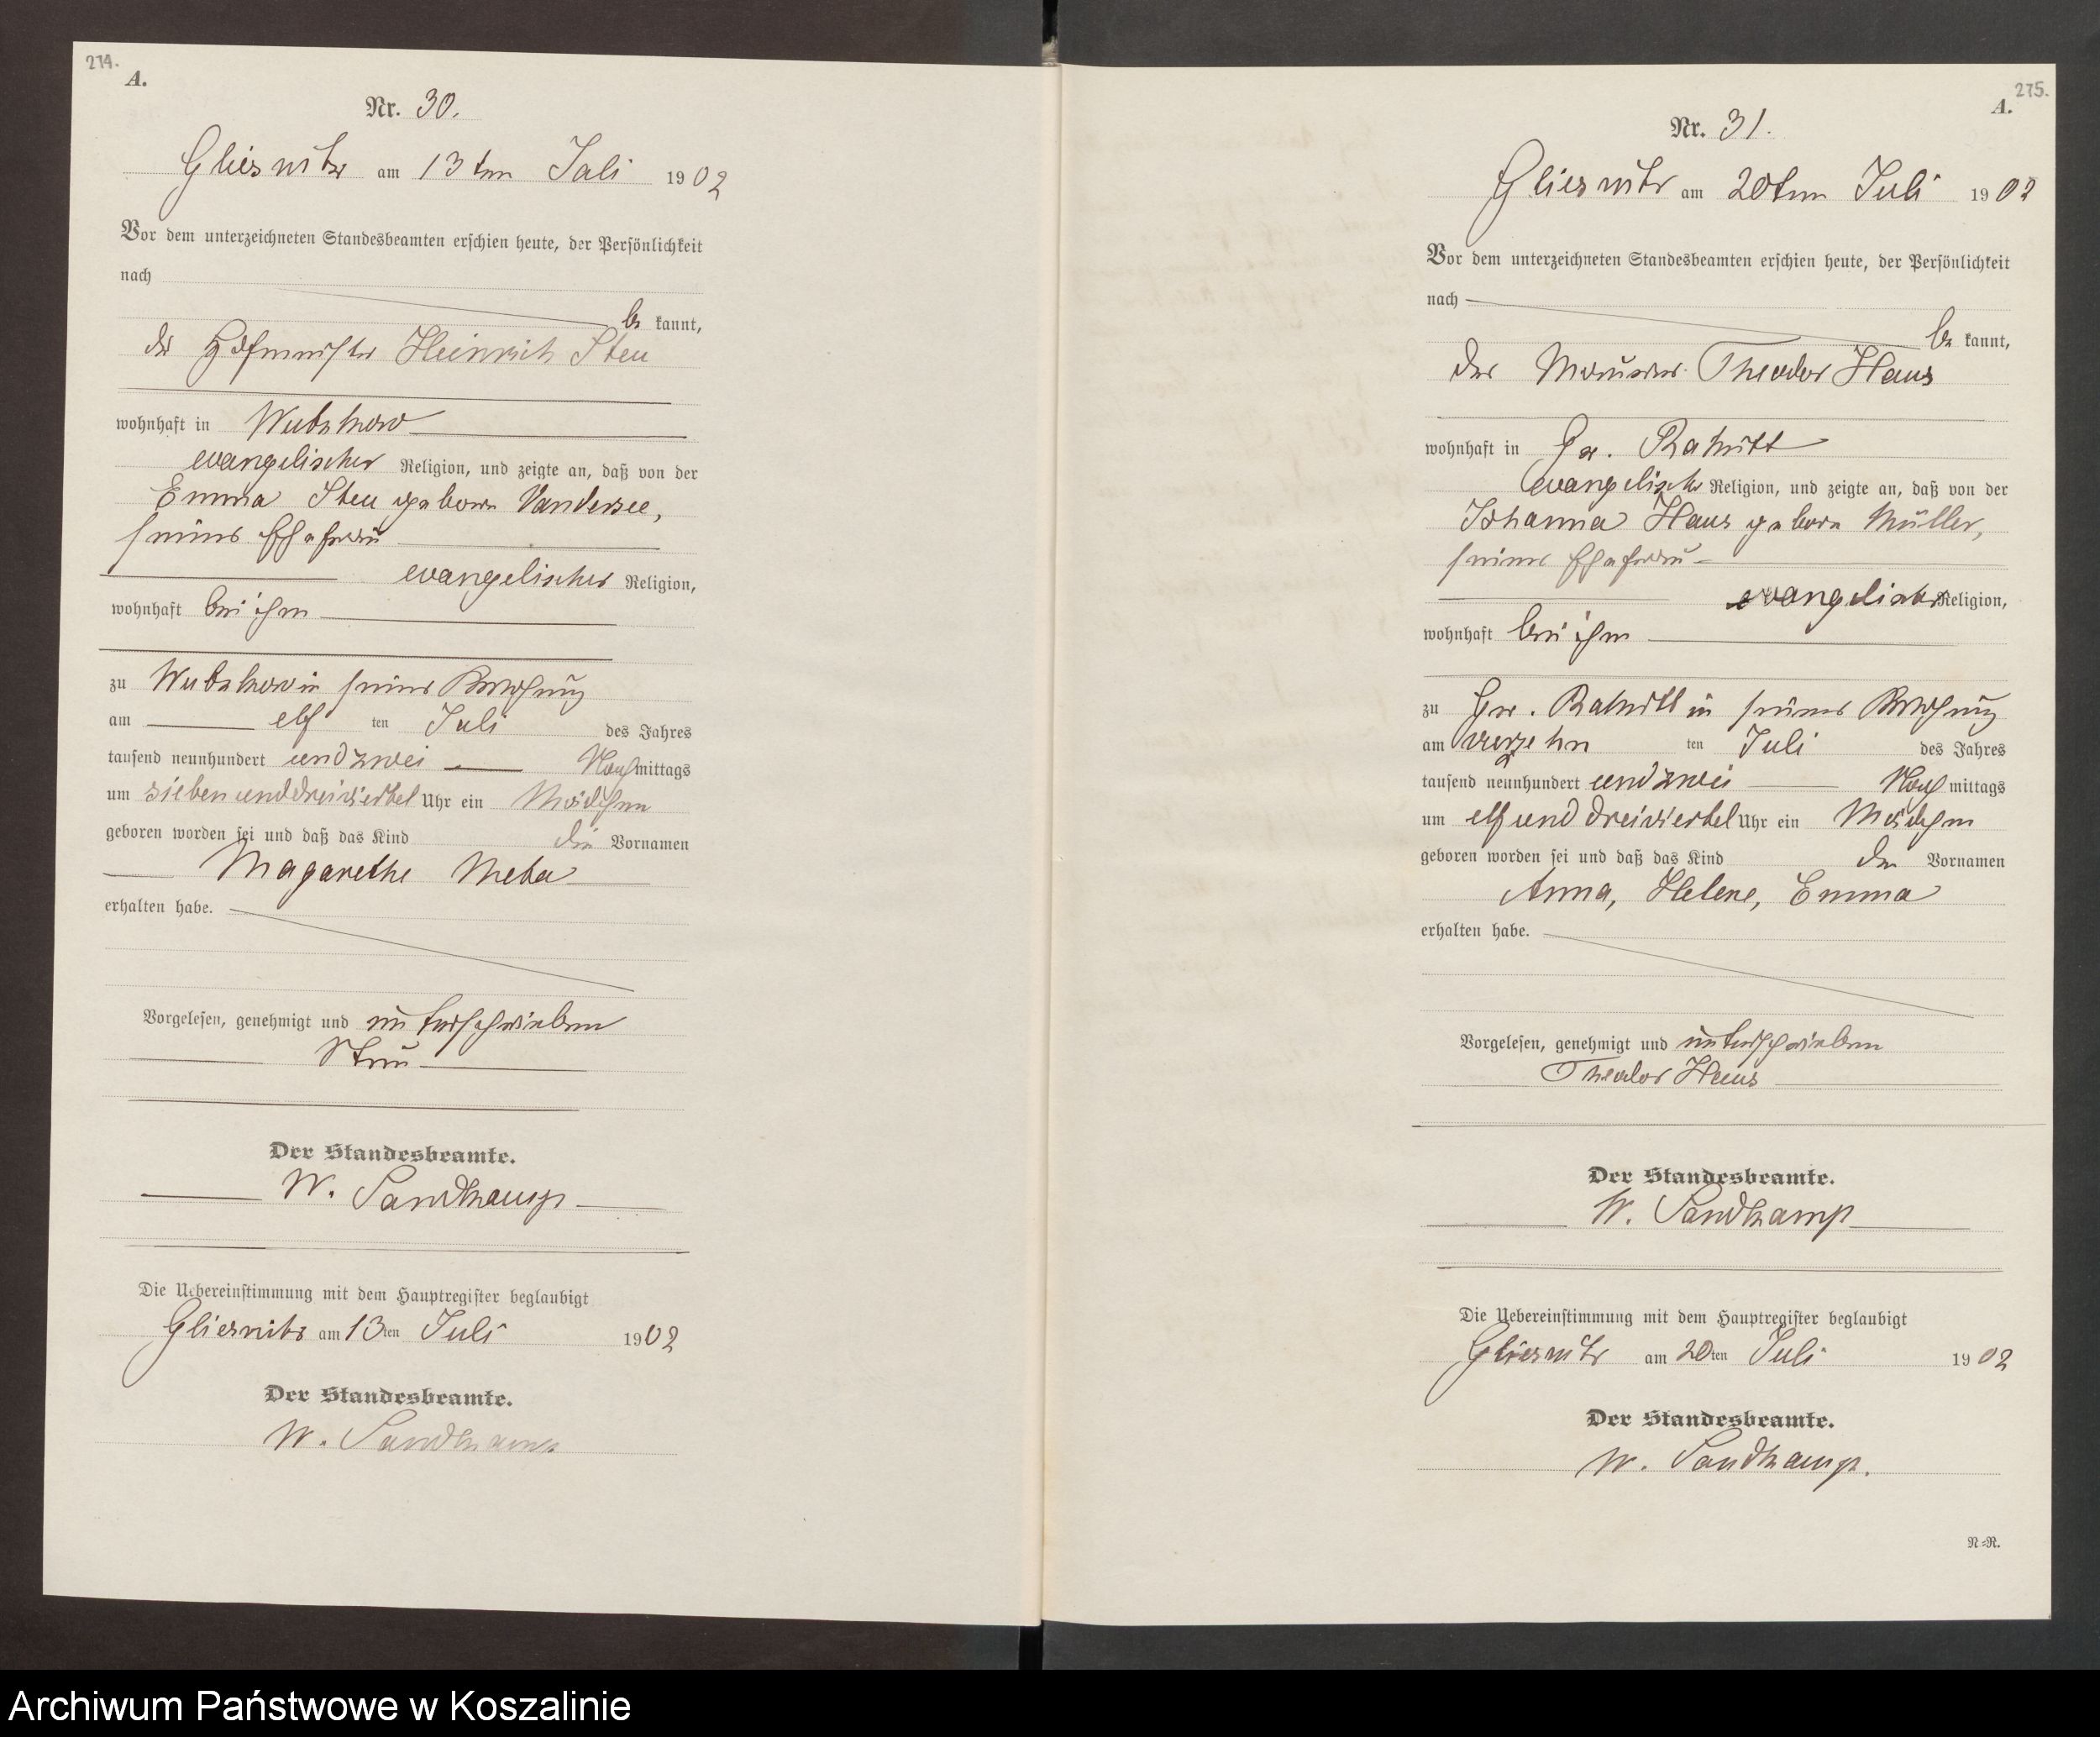 274.
A.
Nr. 30.
Gliesnitz am 13ten Juli 1902
Vor dem unterzeichneten Standesbeamten erschien heute, der Persönlichkeit
nach
be kannt,
der Hofmeister Heinrich Steu
wohnhaft in Wutzkow
evangelischer Religion, und zeigte an, daß von der
Emma Steu geborne Vandersee,
seiner Ehefrau
evangelischer Religion,
wohnhaft bei ihm
zu Wutzkow in seiner Wohnung
am elf ten Juli des Jahres
tausend neunhundert und zwei Nachmittags
um sieben und dreiviertel Uhr ein Mädchen
geboren worden sei und daß das Kind die Vornamen
Magarethe Meta
erhalten habe.
Vorgelesen, genehmigt und unterschrieben
Steu
Der Standesbeamte.
W. Sandkamp
Die Uebereinstimmung mit dem Hauptregister beglaubigt
Gliesnitz am 13ten Juli 1902
Der Standesbeamte.
W. Sandkamp
275.
A.
Nr. 31.
Gliesnitz am 20ten Juli 1902
Vor dem unterzeichneten Standesbeamten erschien heute, der Persönlichkeit
nach
be kannt,
der Maurer Theodor Haus
wohnhaft in Gr. Rakitt
evangelischer Religion, und zeigte an, daß von der
Johanna Haus geborne Müller,
seiner Ehefrau
evangelischer Religion,
wohnhaft bei ihm
zu Gr. Rakitt in seiner Wohnung
am vierzehn ten Juli des Jahres
tausend neunhundert und zwei Nachmittags
um elf und dreiviertel Uhr ein Mädchen
geboren worden sei und daß das Kind den Vornamen
Anna, Helene, Emma
erhalten habe.
Vorgelesen, genehmigt und unterschrieben
Theodor Haus
Der Standesbeamte.
W. Sandkamp
Die Uebereinstimmung mit dem Hauptregister beglaubigt
Gliesnitz am 20ten Juli 1902
Der Standesbeamte.
W. Sandkamp.
N=R.
Archiwum Państwowe w Koszalinie